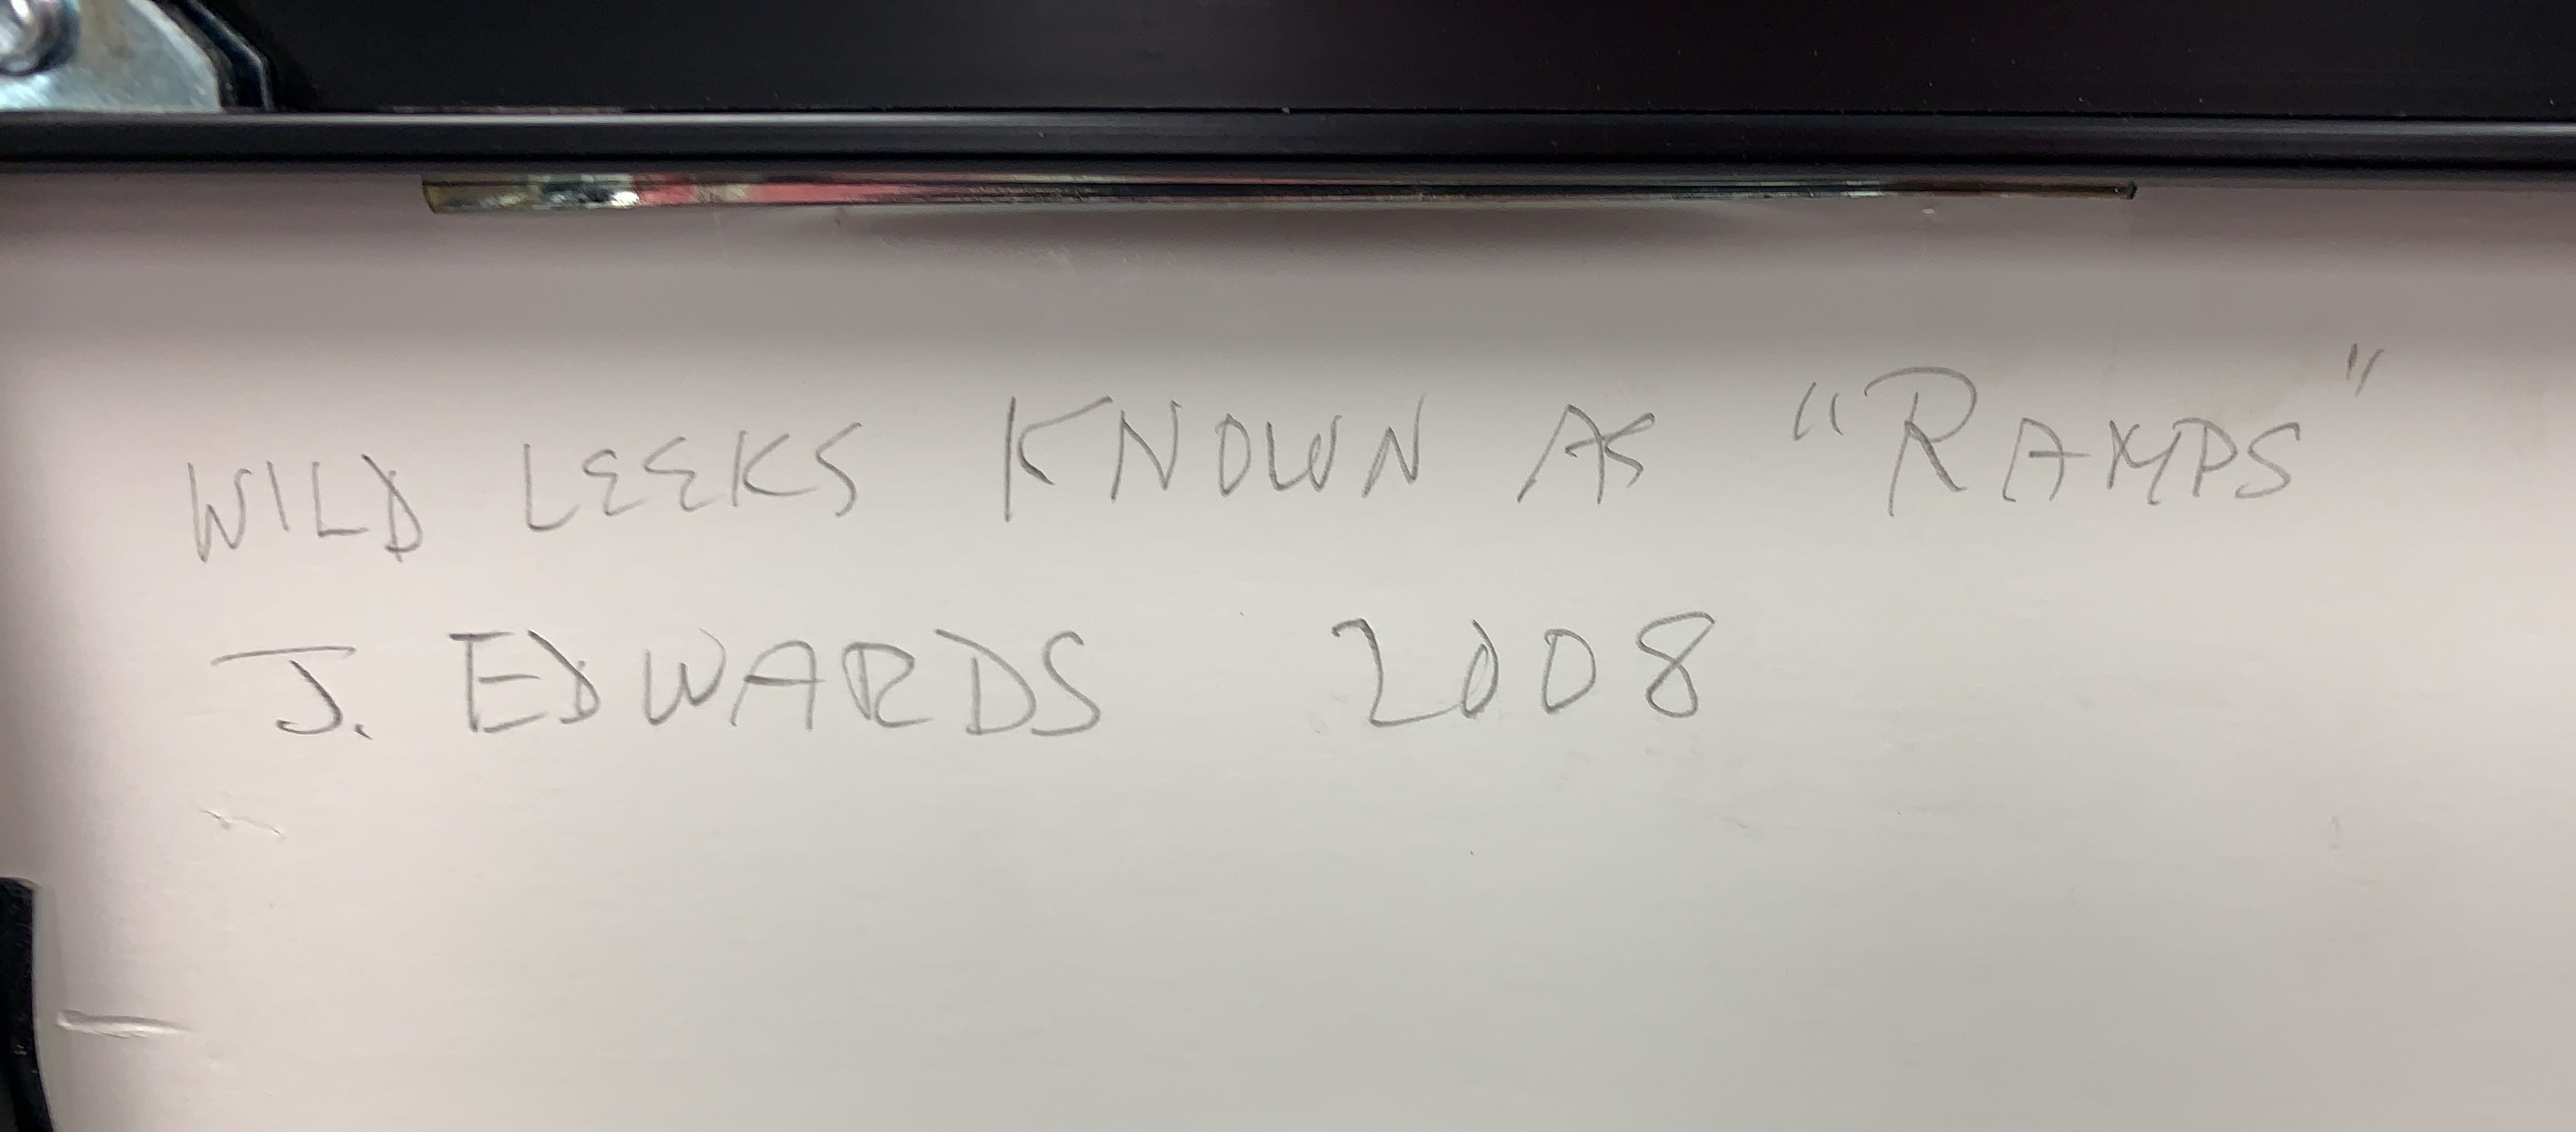 WILD LEEKS KNOWN AS "RAMPS"
J. EDWARDS 2008